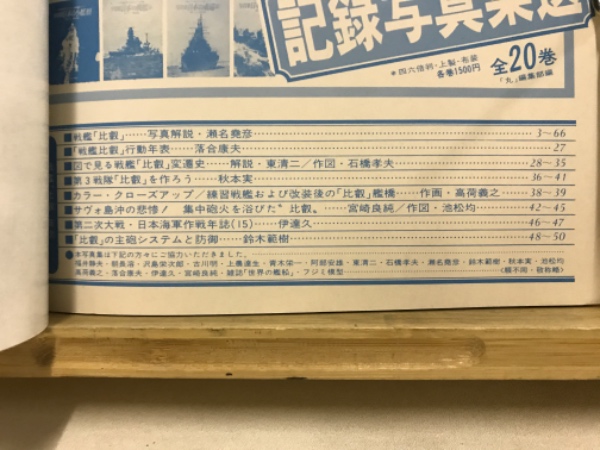 記録写真集選
*四六倍判・上製・布装
各巻1500円
全20巻
「丸」編集部編
■戦艦「比叡」……写真解説・瀬名堯彦……3〜66
■「戦艦比叡」行動年表……落合康夫……27
■図で見る戦艦「比叡」変遷史……解説・東清二／作図・石橋孝夫……28〜35
■第3戦隊「比叡」を作ろう……秋本実……36〜41
■カラー・クローズアップ／練習戦艦および改装後の「比叡」艦橋……作画・高荷義之……38〜39
■サヴォ島沖の悲惨！ 集中砲火を浴びた〝比叡〟……宮崎良純／作図・池松均……42〜45
■第二次大戦・日本海軍作戦年誌(15)……伊達久……46〜47
■「比叡」の主砲システムと防御……鈴木範樹……48〜50
●本写真集は下記の方々にご協力いただきました。
福井静夫・朝長溶・沢島栄次郎・古川明・上墨達生・青木栄一・阿部安雄・東清二・石橋孝夫・瀬名堯彦・鈴木範樹・秋本実・池松均
高荷義之・落合康夫・伊達久・宮崎良純・雑誌「世界の艦船」・フジミ模型……(順不同・敬称略)